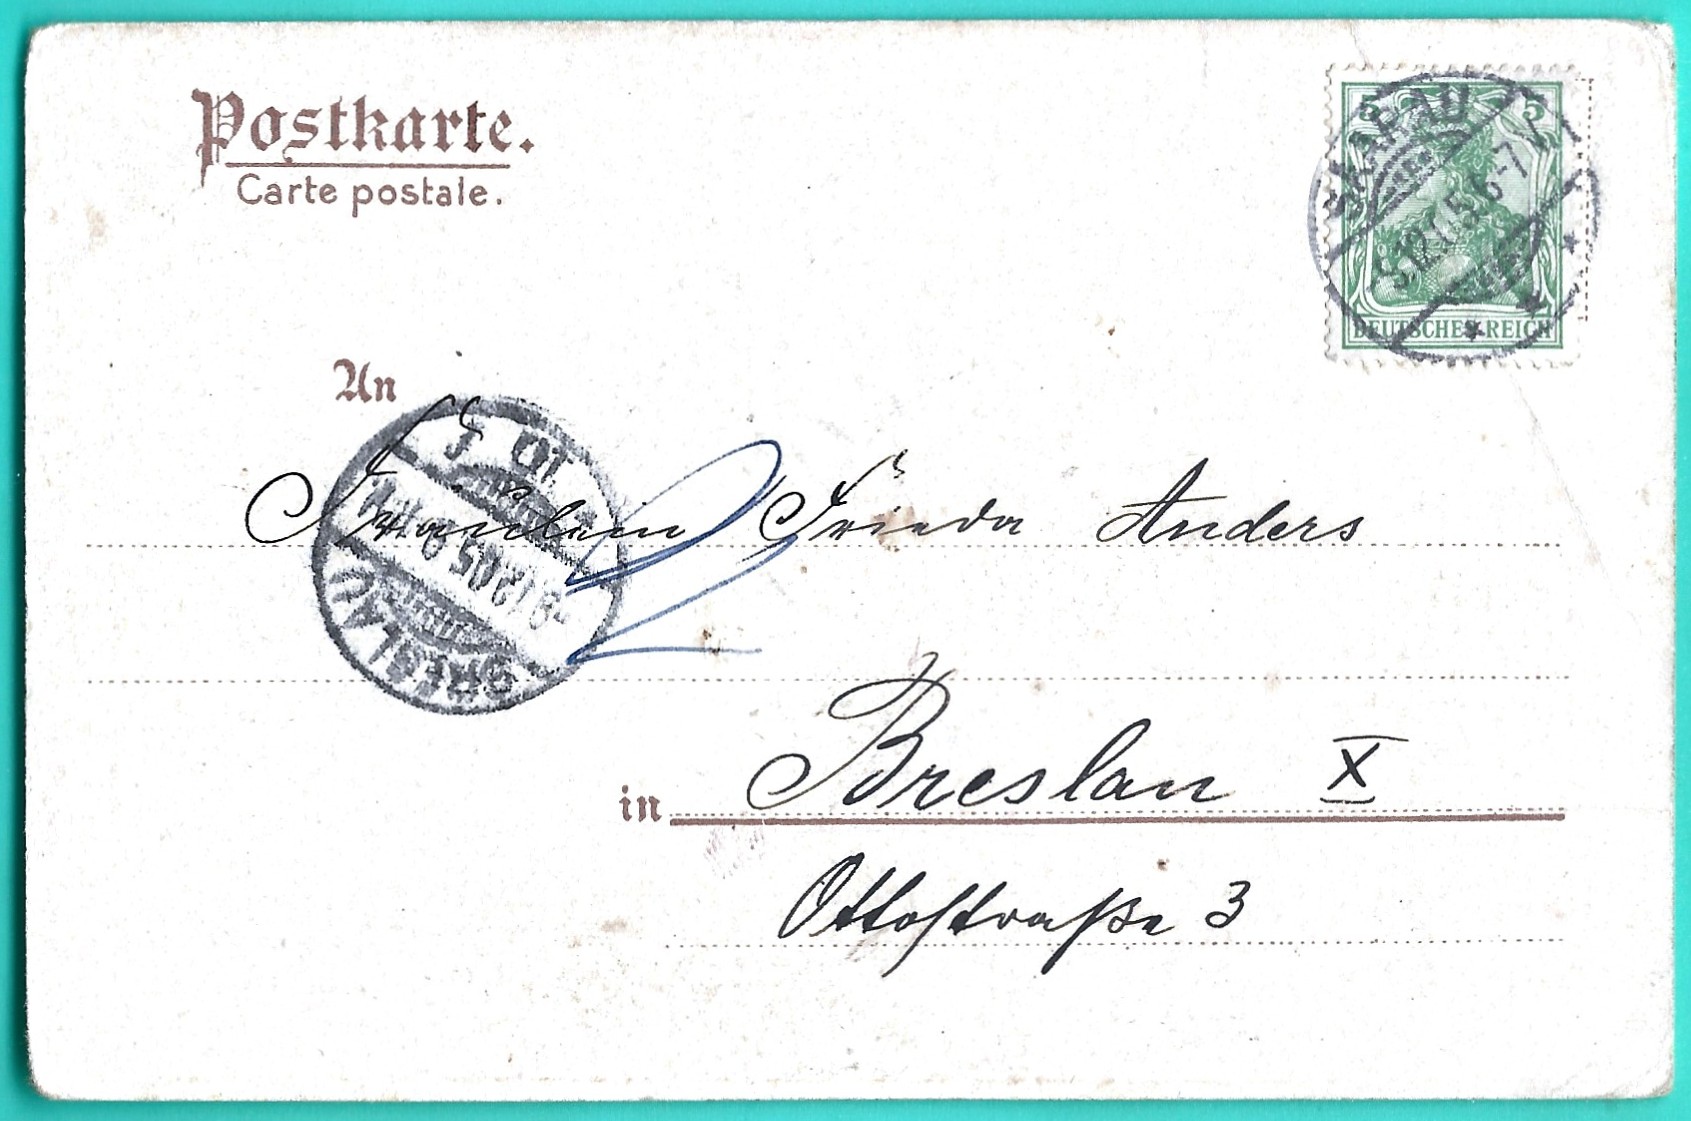 Postkarte.
Carte postale.
5 5
DEUTSCHES REICH
An
Fraulein Frieda Anders
BRESLAU
in Breslau X
Ottostraße 3